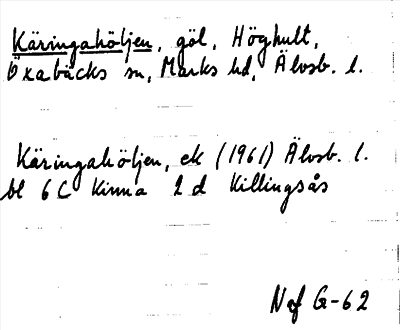 Käringahöljen, göl, Höghult,
Öxabäcks sn, Marks hd, Älvsb. l.
Käringahöljen, ek (1961) Älvsb. l.
bl 6C Kinna 2d Killingsås
Nof G-62